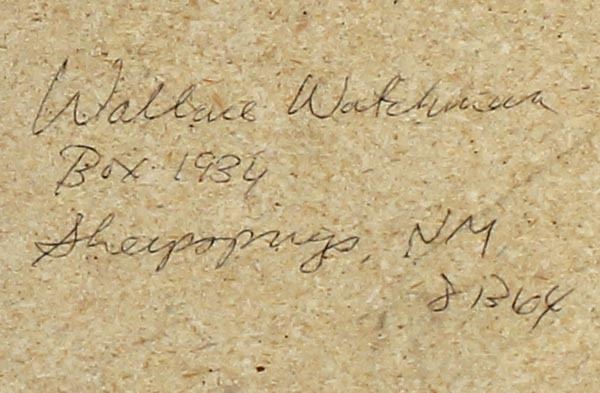 Wallace Watchman
Box 1934
Sheepsprings, NM
81364